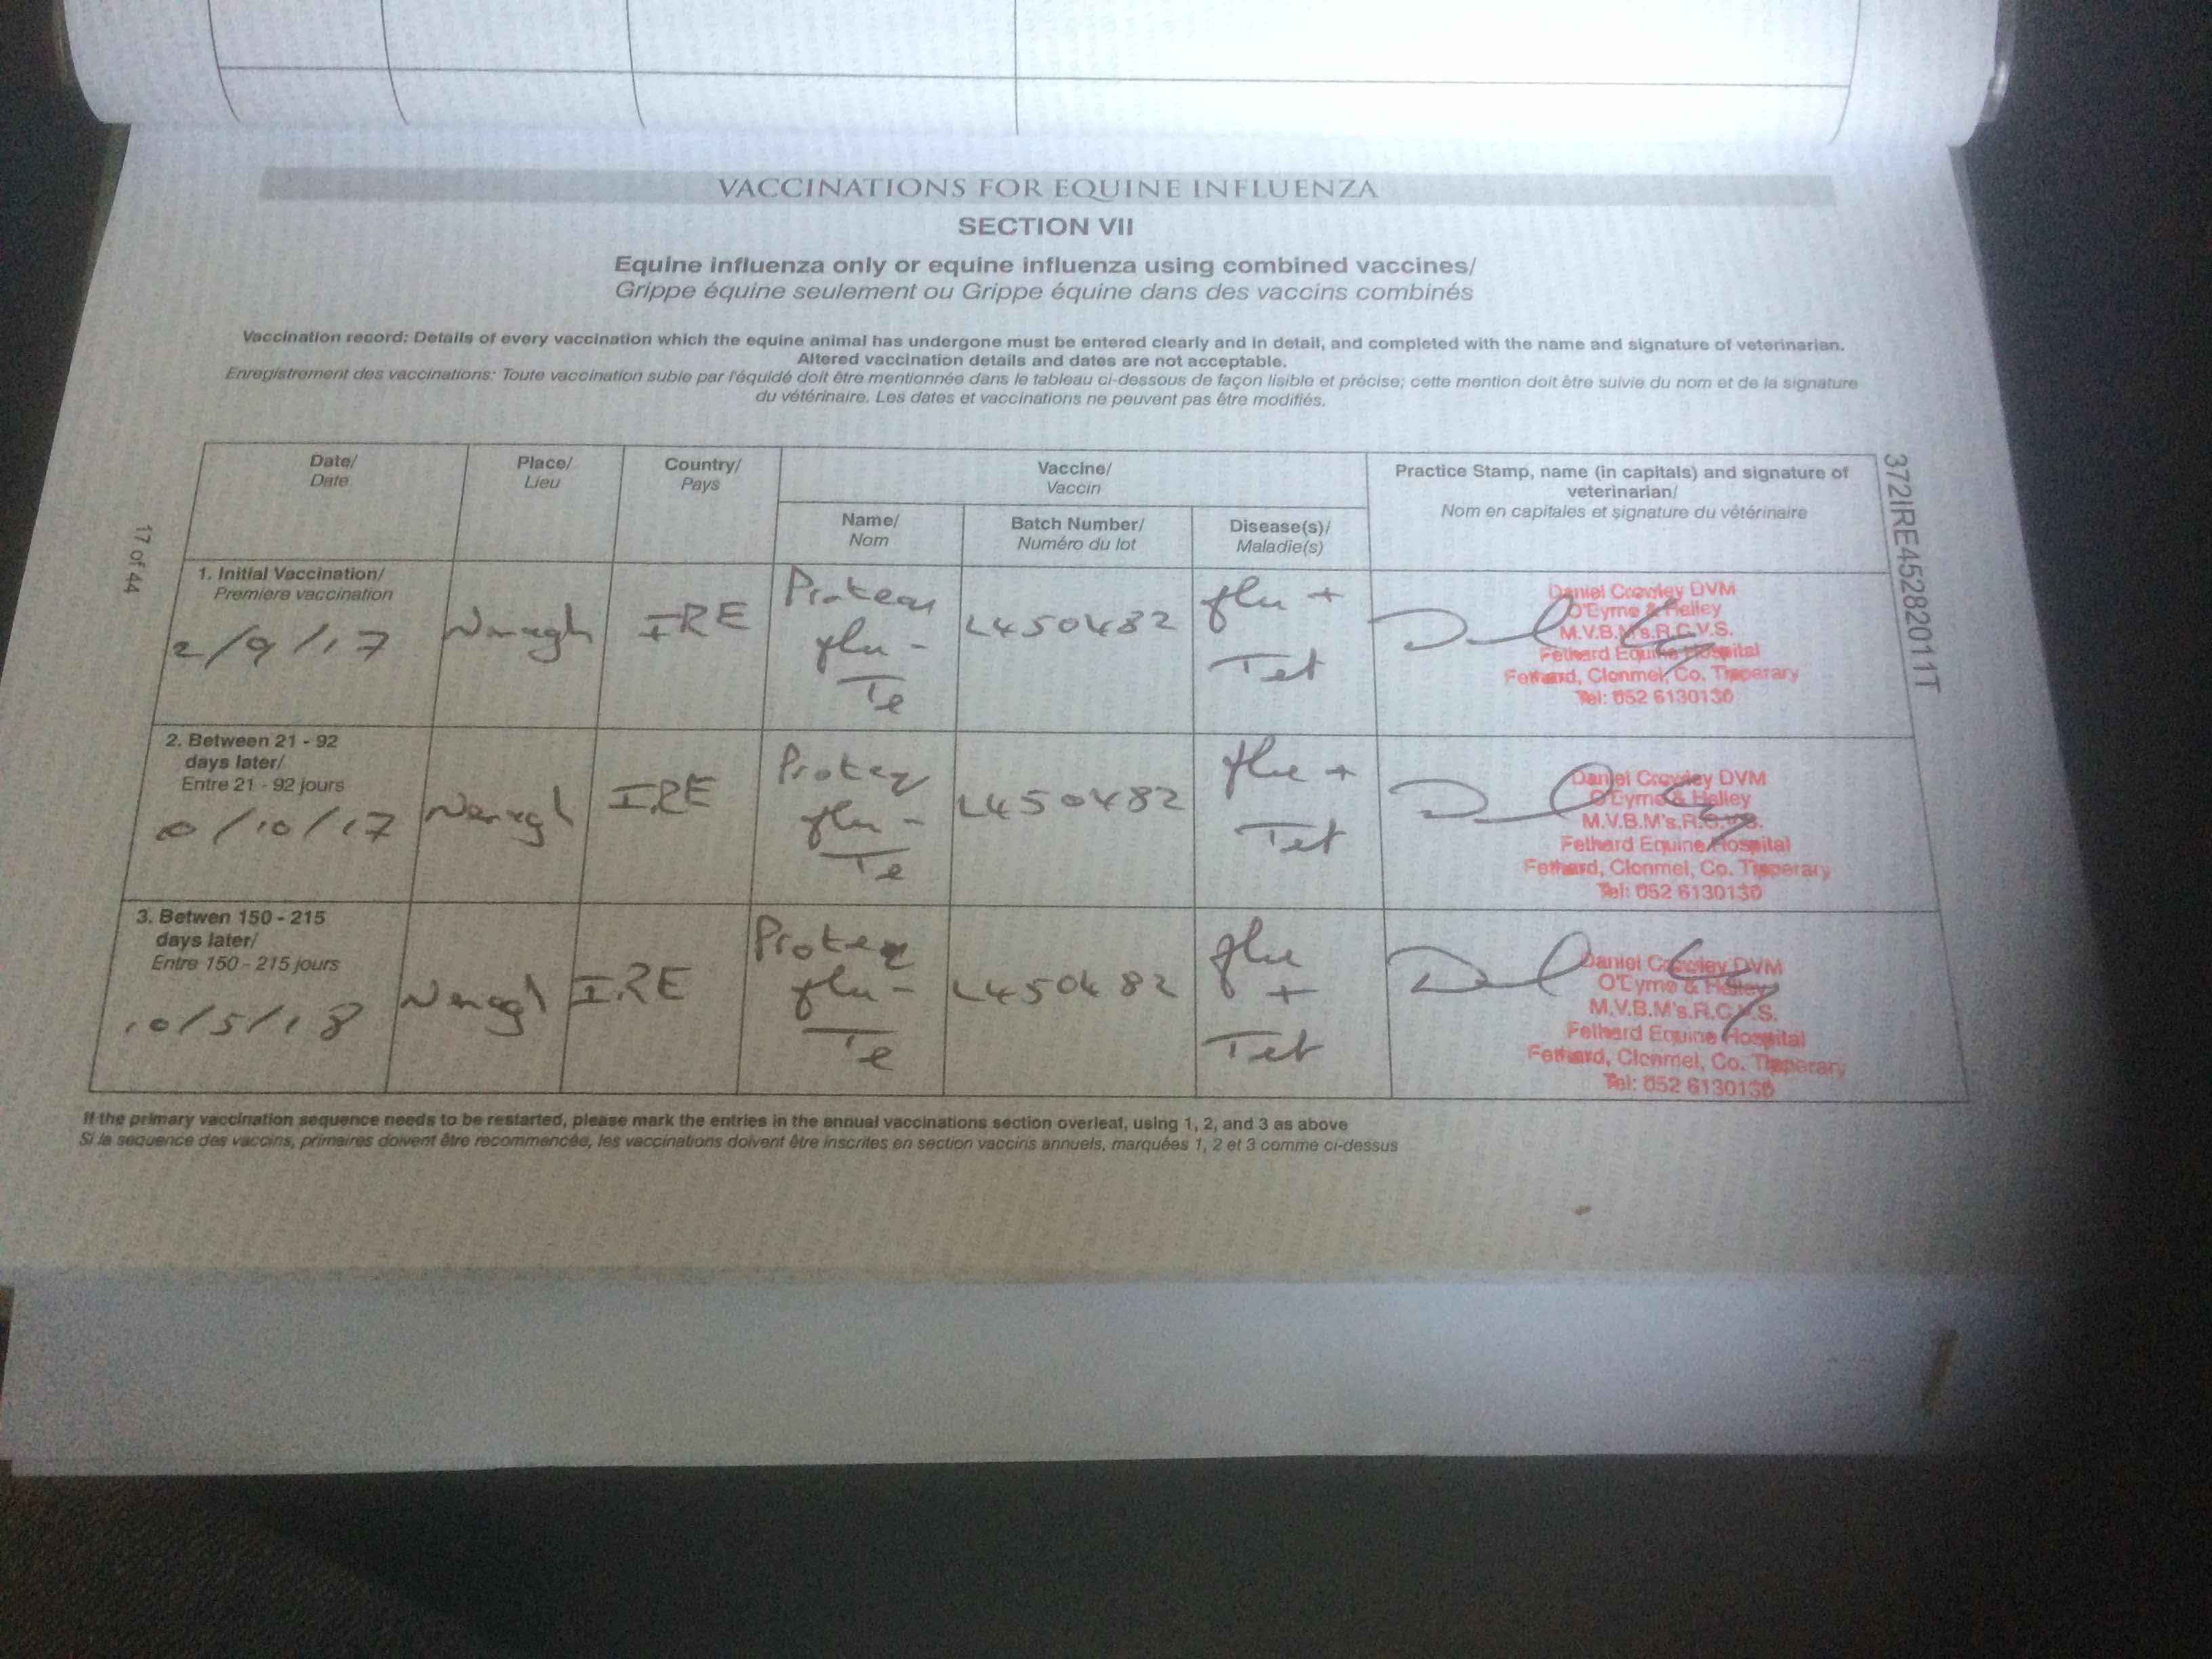 VACCINATIONS FOR EQUINE INFLUENZA
SECTION VII
Equine influenza only or equine influenza using combined vaccines/
Grippe équine seulement ou Grippe équine dans des vaccins combinés
Vaccination record: Details of every vaccination which the equine animal has undergone must be entered clearly and in detail, and completed with the name and signature of veterinarian.
Altered vaccination details and dates are not acceptable.
Enregistrement des vaccinations: Toute vaccination subie par l'équidé doit être mentionnée dans le tableau ci-dessous de façon lisible et précise; cette mention doit être suivie du nom et de la signature
du vétérinaire. Les dates et vaccinations ne peuvent pas être modifiés.
Date/
Date
Place/
Lieu
Country/
Pays
Vaccine/
Vaccin
Practice Stamp, name (in capitals) and signature of
veterinarian/
Nom en capitales et signature du vétérinaire
Name/
Nom
Batch Number/
Numéro du lot
Disease(s)/
Maladie(s)
1. Initial Vaccination/
Premiere vaccination
2/9/17
Nenagh
IRE
Proteq
flu -
Te
L450482
flu +
Tet
Daniel Crowley DVM
M.V.B.M's.R.C.V.S.
Fethard Equine Hospital
Fethard, Clonmel, Co. Tipperary
Tel: 052 6130130
2. Between 21 - 92
days later/
Entre 21 - 92 jours
/10/17
Nenagh
IRE
Proteq
flu -
Te
L450482
flu +
Tet
Daniel Crowley DVM
M.V.B.M's.R.C.V.S.
Fethard Equine Hospital
Fethard, Clonmel, Co. Tipperary
Tel: 052 6130130
3. Betwen 150 - 215
days later/
Entre 150 - 215 jours
10/5/18
Nenagh
IRE
Proteq
flu -
Te
L450482
flu
+
Tet
Daniel Crowley DVM
M.V.B.M's.R.C.V.S.
Fethard Equine Hospital
Fethard, Clonmel, Co. Tipperary
Tel: 052 6130130
If the primary vaccination sequence needs to be restarted, please mark the entries in the annual vaccinations section overleaf, using 1, 2, and 3 as above
Si la sequence des vaccins, primaires doivent être recommencée, les vaccinations doivent être inscrites en section vaccins annuels, marquées 1, 2 et 3 comme ci-dessus
17 of 44
372IRE45282011T